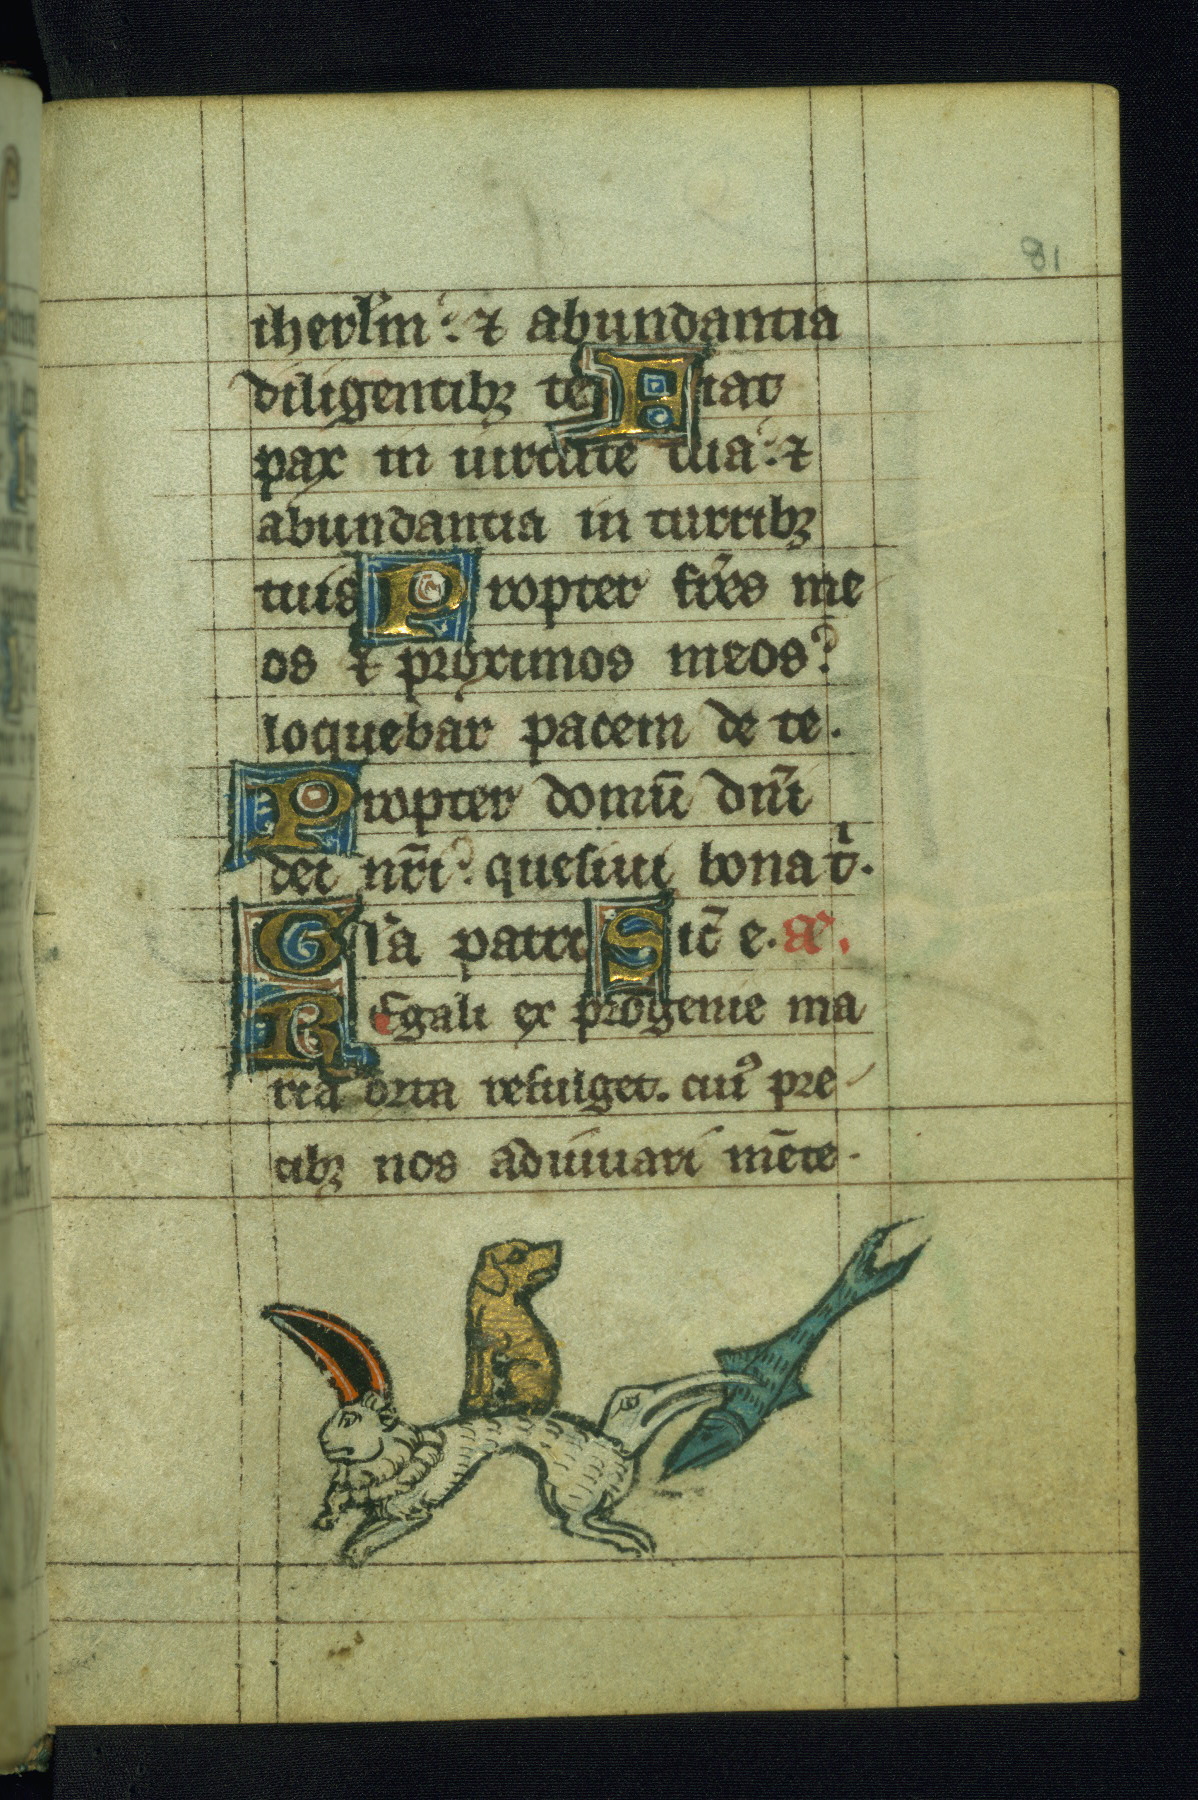 81
iherl'm : ⁊ abundantia
diligentibꝫ te Fiat
pax in uirtute tua : ⁊
abundantia in turribꝫ
tuis Propter fr̄es me
os ⁊ proximos meos?
loquebar pacem de te.
Propter domū dn̄i
dei nr̄i : quesiui bona tⁱ.
Gl'a patri Sic̄ e. a͞.
REgali ex progenie ma
ria orta refulget. cuiꝰ pre
cibꝫ nos adiuuari mēte.